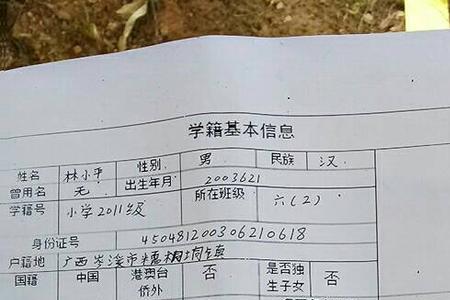 学籍基本信息
姓名 林小平 性别 男 民族 汉
曾用名 无 出生年月 2003621
学籍号 小学2011级 所在班级 六(2)
身份证号 450481200306210618
户籍地 广西岑溪市糯垌镇
国籍 中国 港澳台侨外 否 是否独生子女 否